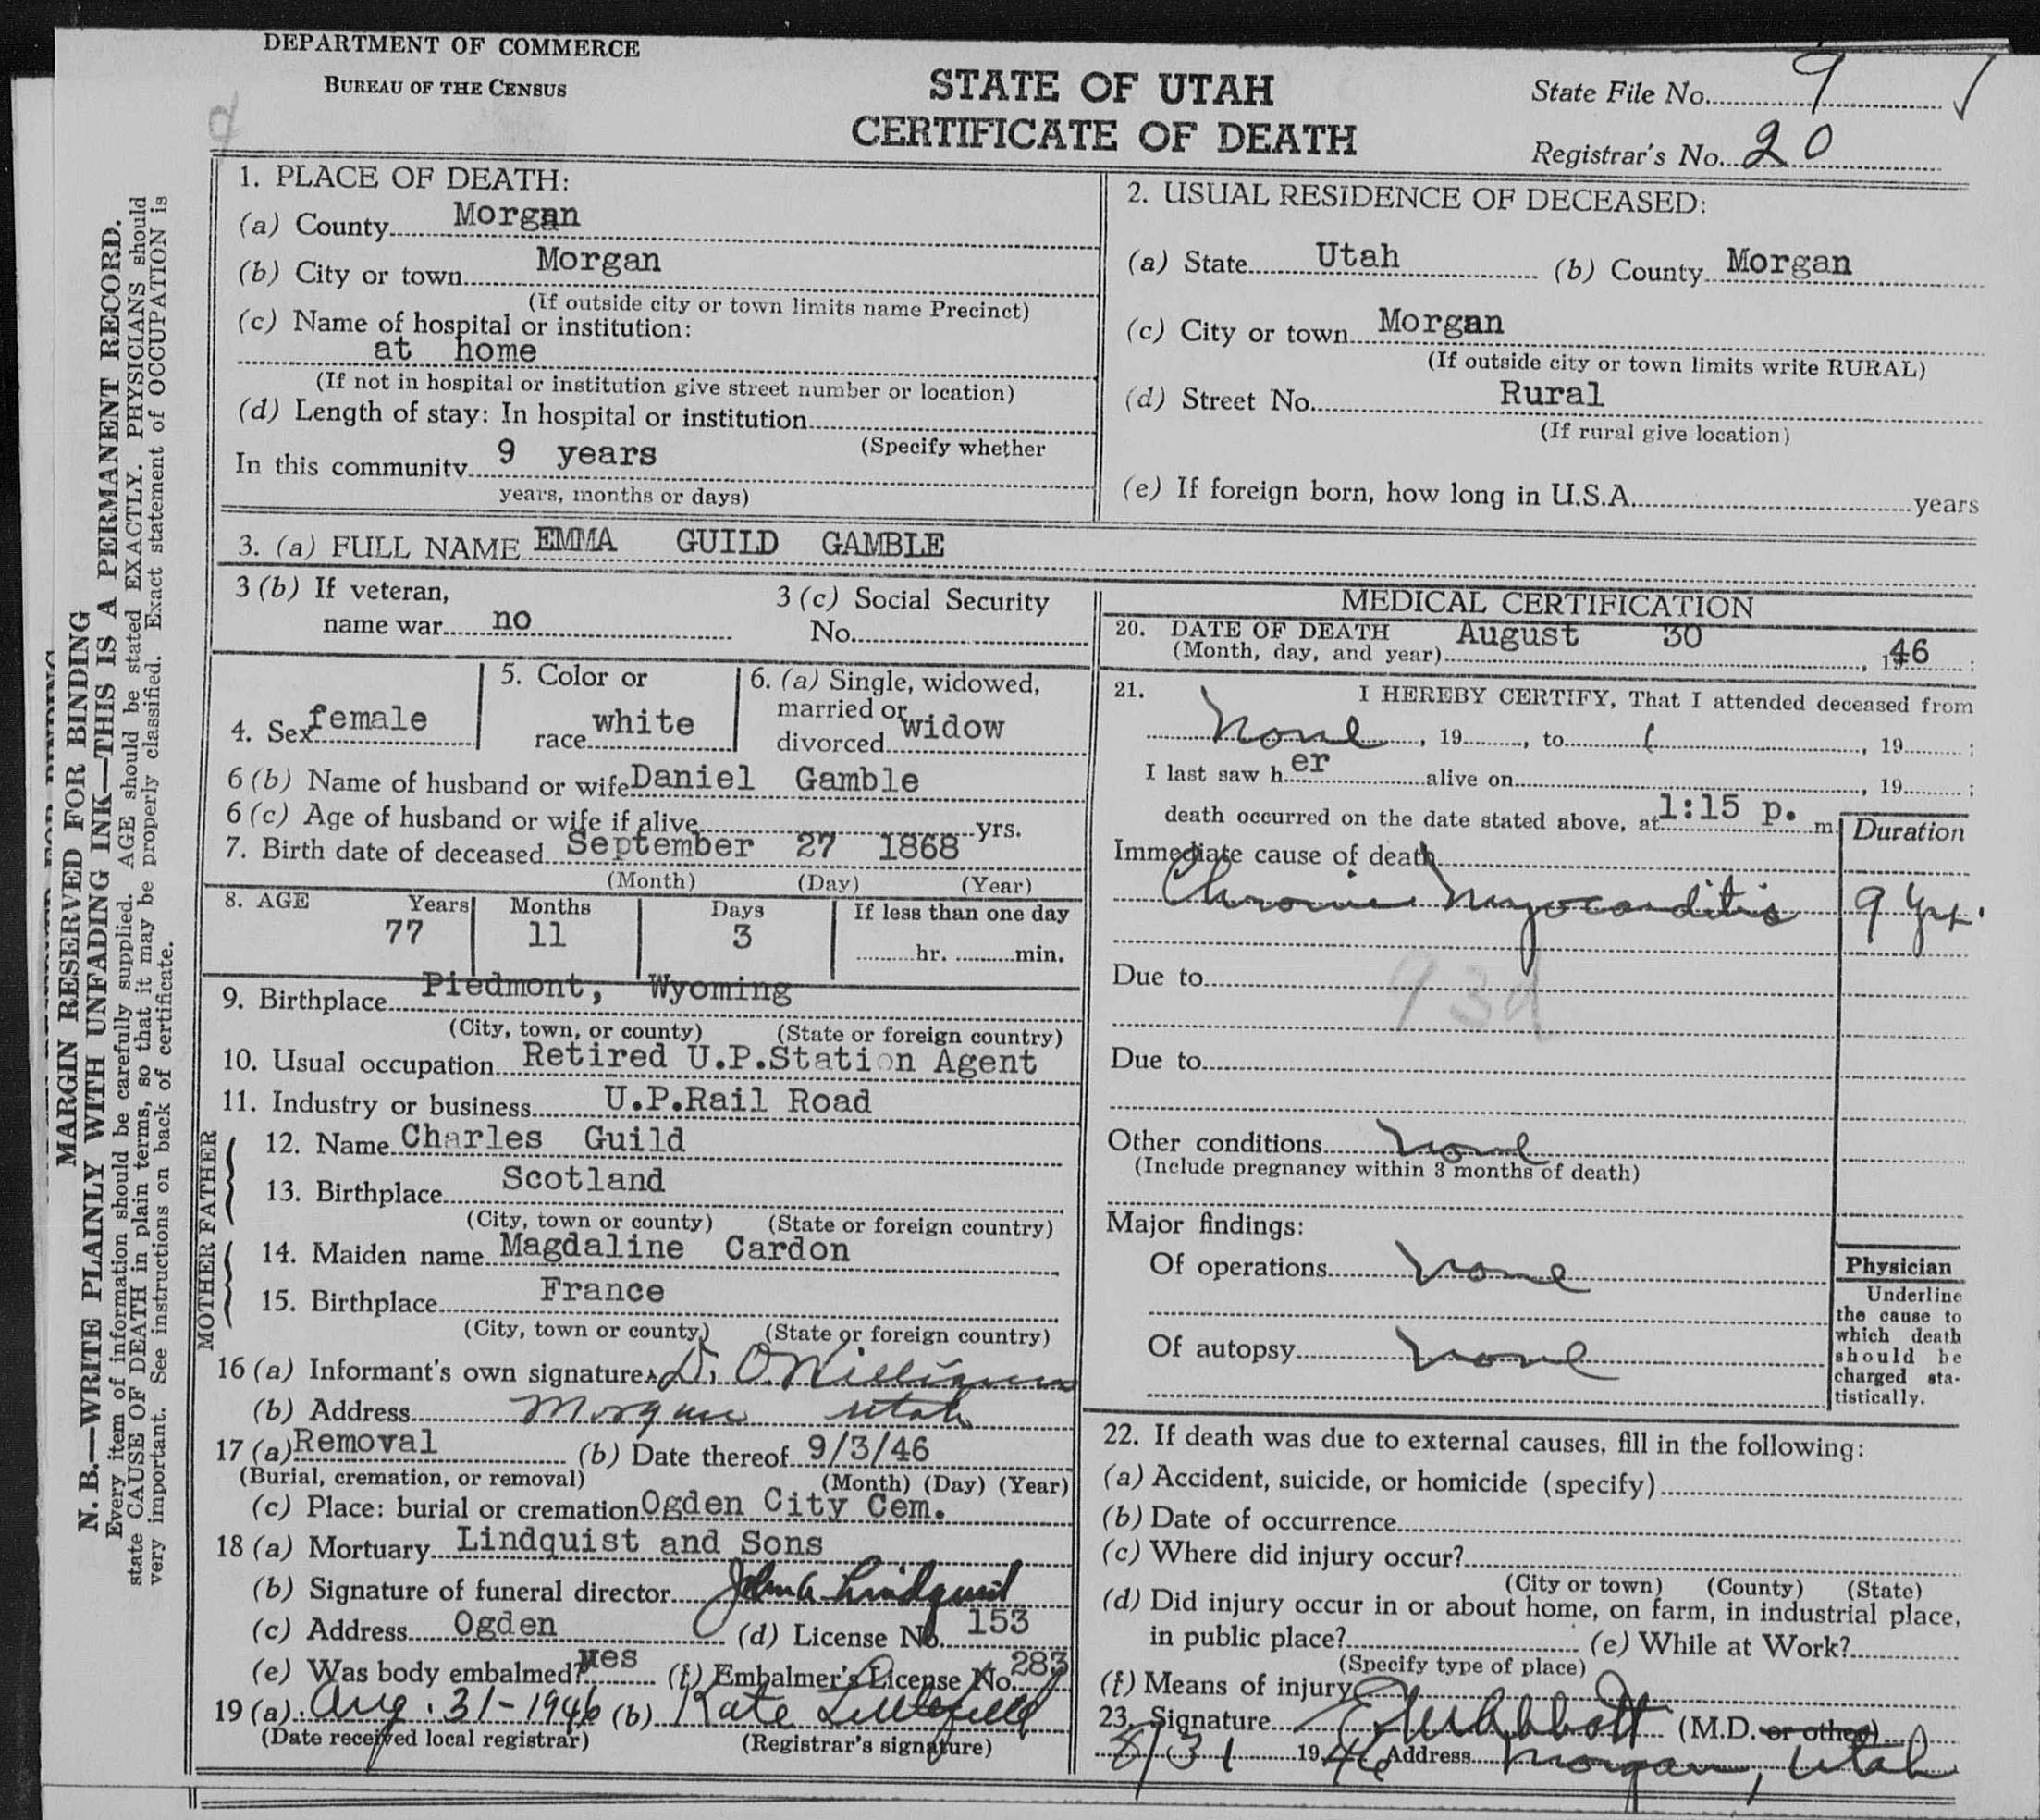 DEPARTMENT OF COMMERCE
BUREAU OF THE CENSUS
STATE OF UTAH
CERTIFICATE OF DEATH
State File No. 9
Registrar's No. 20
N. B.—WRITE PLAINLY WITH UNFADING INK—THIS IS A PERMANENT RECORD.
MARGIN RESERVED FOR BINDING
Every item of information should be carefully supplied. AGE should be stated EXACTLY. PHYSICIANS should
state CAUSE OF DEATH in plain terms, so that it may be properly classified. Exact statement of OCCUPATION is
very important. See instructions on back of certificate.
1. PLACE OF DEATH:
(a) County Morgan
(b) City or town Morgan
(If outside city or town limits name Precinct)
(c) Name of hospital or institution:
at home
(If not in hospital or institution give street number or location)
(d) Length of stay: In hospital or institution
(Specify whether
In this community 9 years
years, months or days)
2. USUAL RESIDENCE OF DECEASED:
(a) State Utah (b) County Morgan
(c) City or town Morgan
(If outside city or town limits write RURAL)
(d) Street No. Rural
(If rural give location)
(e) If foreign born, how long in U.S.A. years
3. (a) FULL NAME EMMA GUILD GAMBLE
3 (b) If veteran,
name war no
3 (c) Social Security
No.
4. Sex female
5. Color or
race white
6. (a) Single, widowed,
married or
divorced widow
6 (b) Name of husband or wife Daniel Gamble
6 (c) Age of husband or wife if alive yrs.
7. Birth date of deceased September 27 1868
(Month) (Day) (Year)
8. AGE Years Months Days If less than one day
77 11 3 hr. min.
9. Birthplace Piedmont, Wyoming
(City, town, or county) (State or foreign country)
10. Usual occupation Retired U.P.Station Agent
11. Industry or business U.P.Rail Road
FATHER
12. Name Charles Guild
13. Birthplace Scotland
(City, town or county) (State or foreign country)
MOTHER
14. Maiden name Magdaline Cardon
15. Birthplace France
(City, town or county) (State or foreign country)
16 (a) Informant's own signature
(b) Address Morgan Utah
17 (a) Removal (b) Date thereof 9/3/46
(Burial, cremation, or removal) (Month) (Day) (Year)
(c) Place: burial or cremation Ogden City Cem.
18 (a) Mortuary Lindquist and Sons
(b) Signature of funeral director John A Lindquist
(c) Address Ogden (d) License No. 153
(e) Was body embalmed? yes (f) Embalmer's License No. 283
19 (a) Aug. 31-1946 (b) Kate Littlefield
(Date received local registrar) (Registrar's signature)
MEDICAL CERTIFICATION
20. DATE OF DEATH August 30
(Month, day, and year) , 1946 ;
21. I HEREBY CERTIFY, That I attended deceased from
None , 19 , to , 19 ;
I last saw her alive on , 19 ;
death occurred on the date stated above, at 1:15 p. m.
Duration
Immediate cause of death
Chronic Myocarditis 9 yrs.
Due to
93d
Due to
Other conditions none
(Include pregnancy within 3 months of death)
Major findings:
Of operations none
Of autopsy none
Physician
Underline
the cause to
which death
should be
charged sta-
tistically.
22. If death was due to external causes, fill in the following:
(a) Accident, suicide, or homicide (specify)
(b) Date of occurrence
(c) Where did injury occur?
(City or town) (County) (State)
(d) Did injury occur in or about home, on farm, in industrial place,
in public place? (e) While at Work?
(Specify type of place)
(f) Means of injury
23. Signature Abbott (M.D. or other)
8/31 1946 Address Morgan, Utah